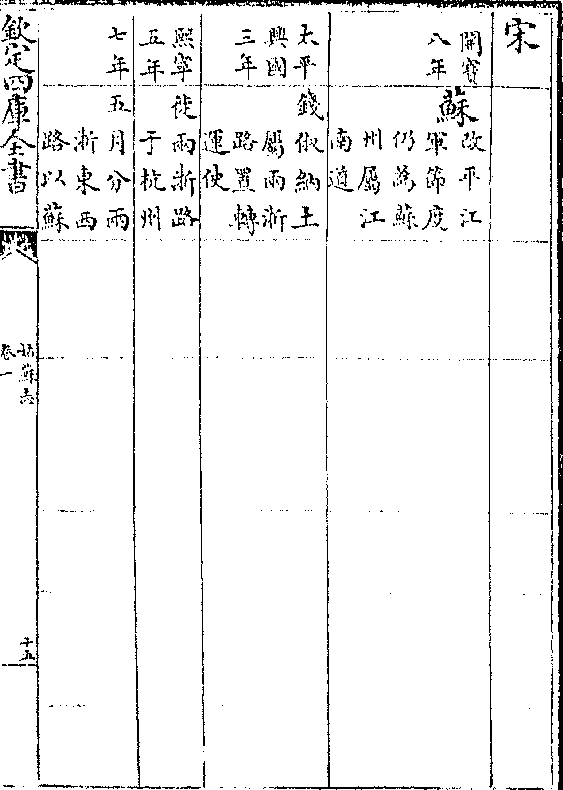 宋
開寶
八年
蘇
改平江
軍節度
仍爲蘇
州屬江
南道
太平
興國
三年
錢俶納土
屬兩浙
路置轉
運使
熙寧
五年
徙兩浙路
于杭州
七年
五月分兩
浙東西
路以蘇
欽定四庫全書
姑蘇志
卷一
十五